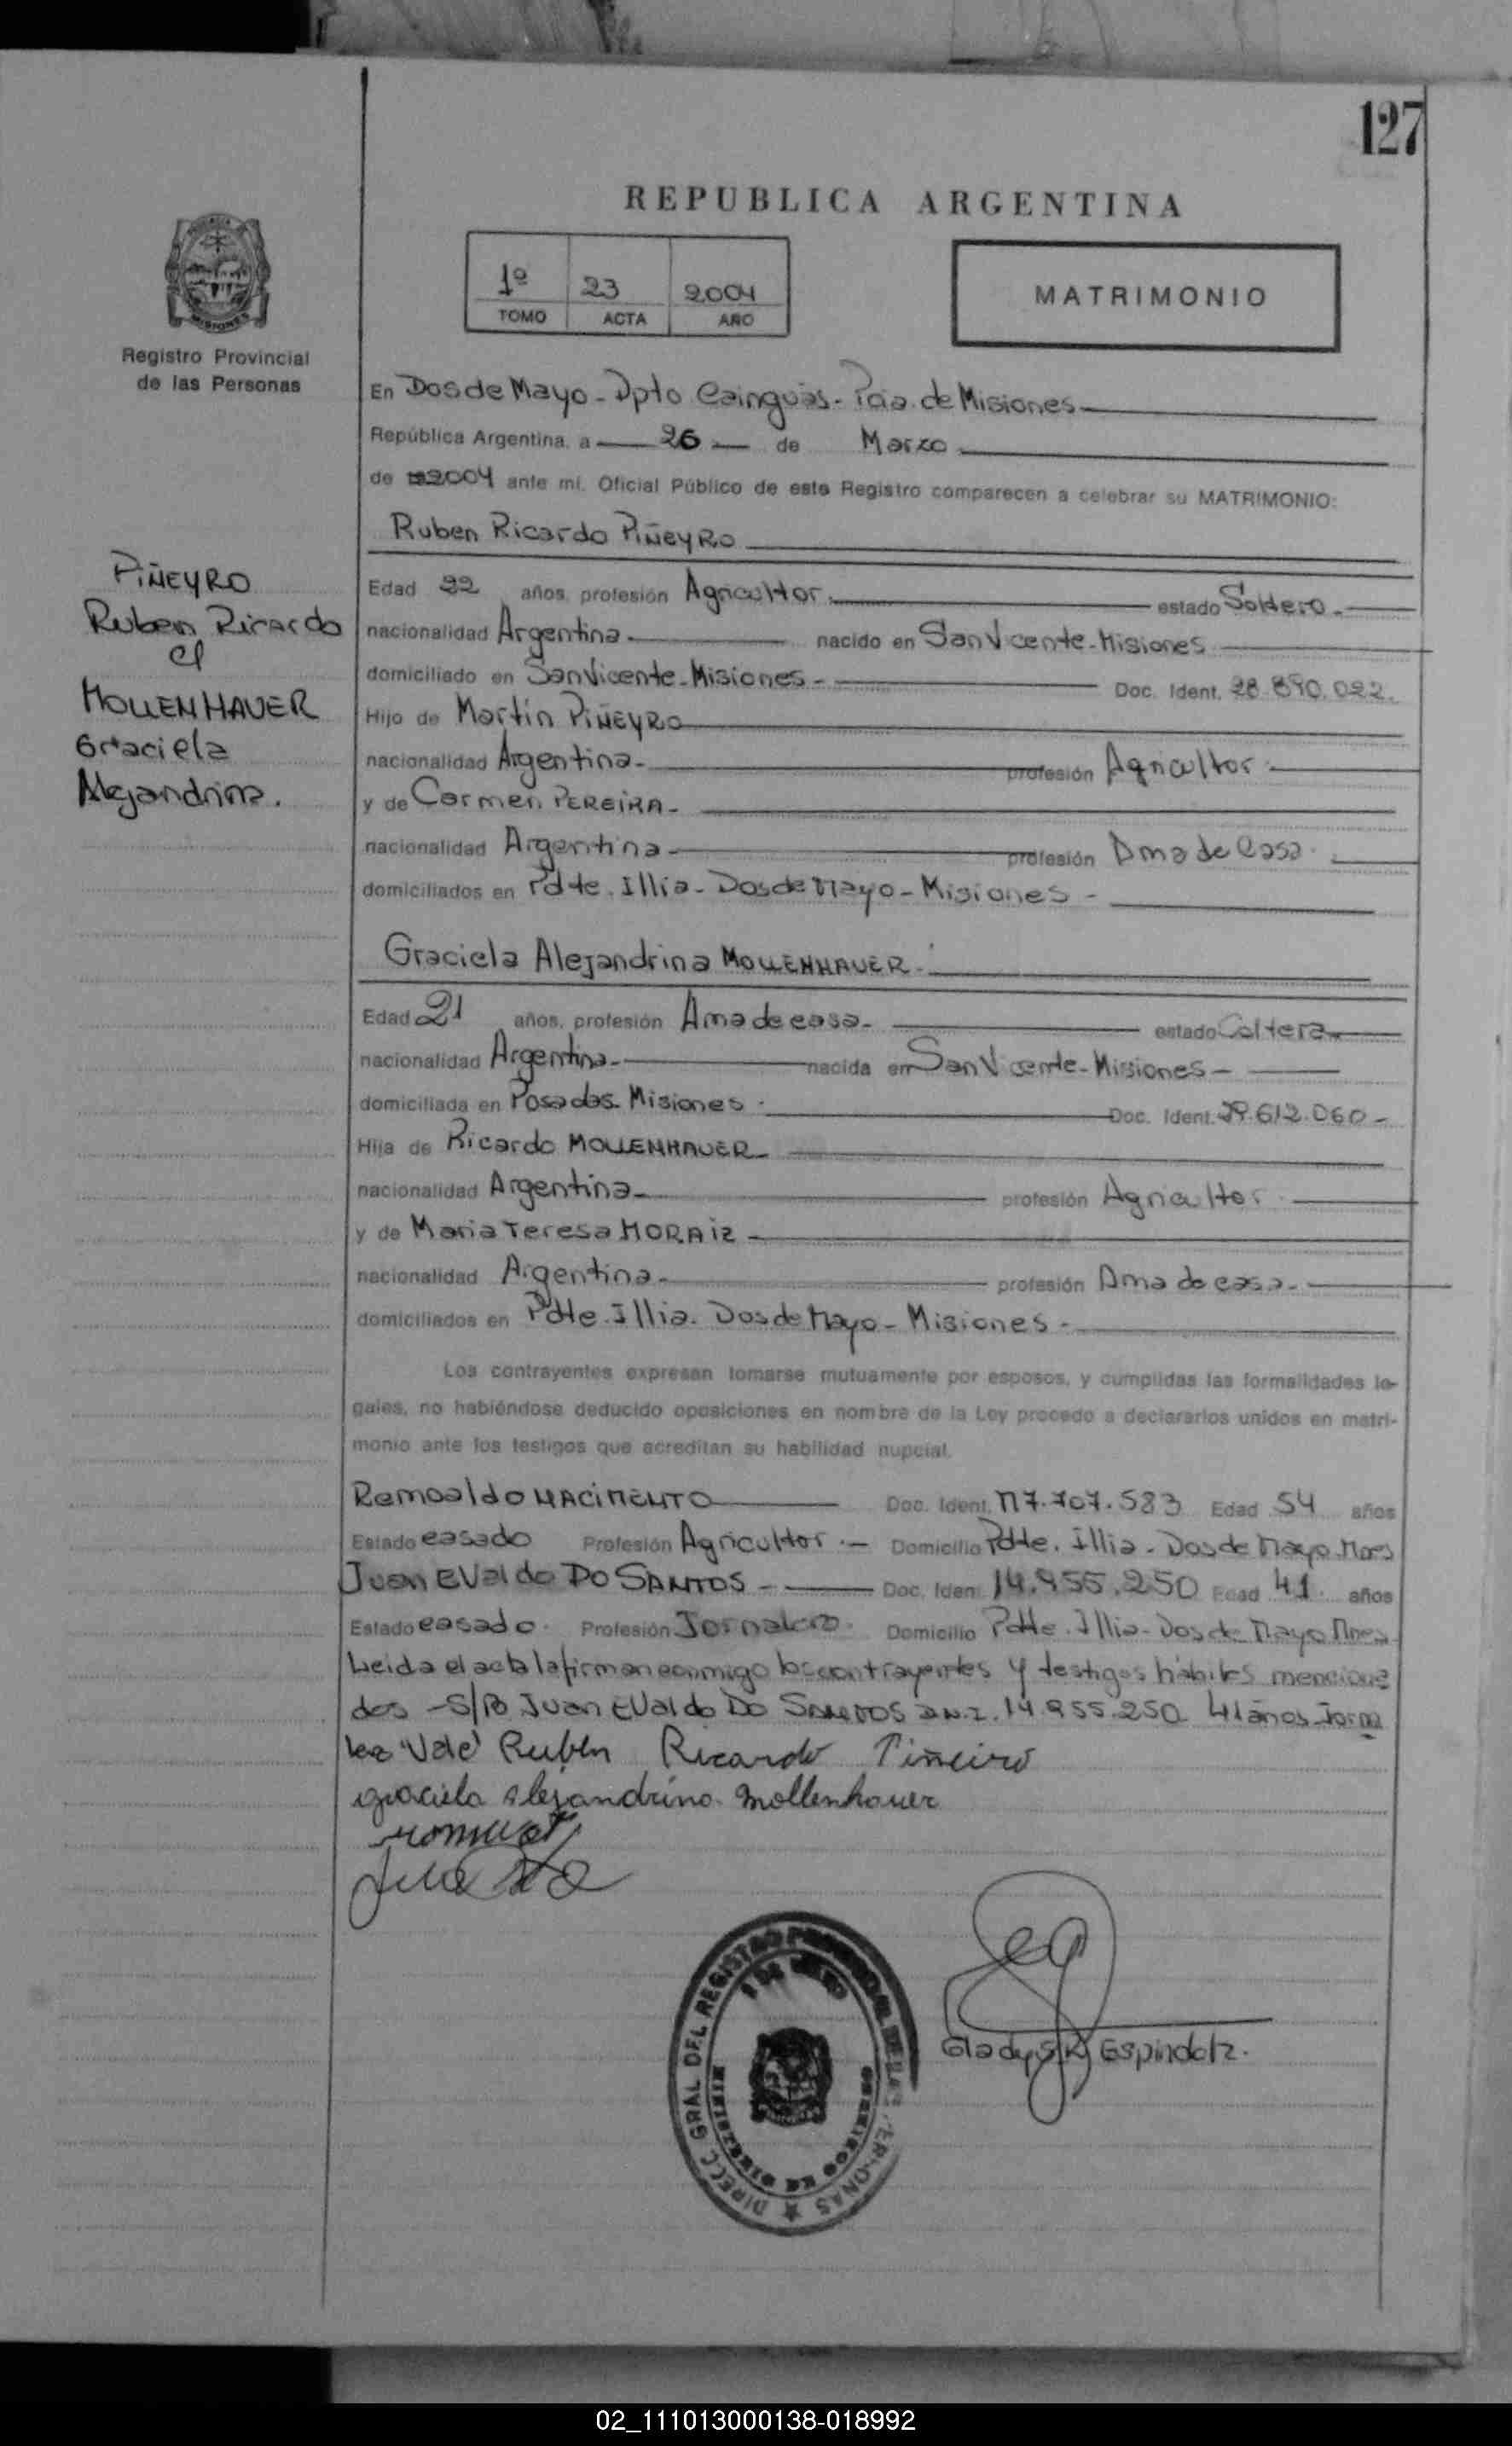 127
REPUBLICA ARGENTINA
1º 23 2004
TOMO ACTA AÑO
MATRIMONIO
Registro Provincial
de las Personas
En Dos de Mayo - Dpto Cainguás - Pcia. de Misiones
República Argentina, a 26 de Marzo
de 2004 ante mí, Oficial Público de este Registro comparecen a celebrar su MATRIMONIO:
Ruben Ricardo PiÑeyRo
PiÑEYRO
Ruben Ricardo
c/
MOLLENHAUER
Graciela
Alejandrina.
Edad 22 años, profesión Agricultor. estado Soltero.
nacionalidad Argentina. nacido en San Vicente - Misiones
domiciliado en San Vicente - Misiones - Doc. Ident. 28.890.022.
Hijo de Martín PiÑEYRO
nacionalidad Argentina. profesión Agricultor.
y de Carmen PEREiRA.
nacionalidad Argentina. profesión Ama de Casa.
domiciliados en Pdte. Illia - Dos de Mayo - Misiones -
Graciela Alejandrina MOLLENHAUER.
Edad 21 años, profesión Ama de casa. estado Soltera
nacionalidad Argentina. nacida en San Vicente - Misiones -
domiciliada en Posadas Misiones. Doc. Ident. 29.612.060 -
Hija de Ricardo MOLLENHAUER
nacionalidad Argentina. profesión Agricultor.
y de Maria Teresa MORAiz
nacionalidad Argentina. profesión Ama de casa.
domiciliados en Pdte. Illia. Dos de Mayo - Misiones -
Los contrayentes expresan tomarse mutuamente por esposos, y cumplidas las formalidades le-
gales, no habiéndose deducido oposiciones en nombre de la Ley procedo a declararlos unidos en matri-
monio ante los testigos que acreditan su habilidad nupcial.
Remoaldo NACiMENTO Doc. Ident. M7.707.583 Edad 54 años
Estado casado Profesión Agricultor. Domicilio Pdte. Illia - Dos de Mayo. Mnes
Juan EValdo DO SANTOS - Doc. Iden 14.955.250 Edad 41 años
Estado casado. Profesión Jornalero. Domicilio Pdte. Illia - Dos de Mayo Mnes.
Leida el acta la firman conmigo los contrayentes y testigos hábiles menciona
dos - S/R Juan EValdo DO SANTOS D.N.I. 14.955.250 41 años - Jorna
lero "Vale" Rubén Ricardo Piñeiro
graciela alejandrina mollenhauer
DIRECC. GRAL DEL REGISTRO PROVINCIAL DE LAS PERSONAS
Gladys R. Espindola.
02_111013000138-018992